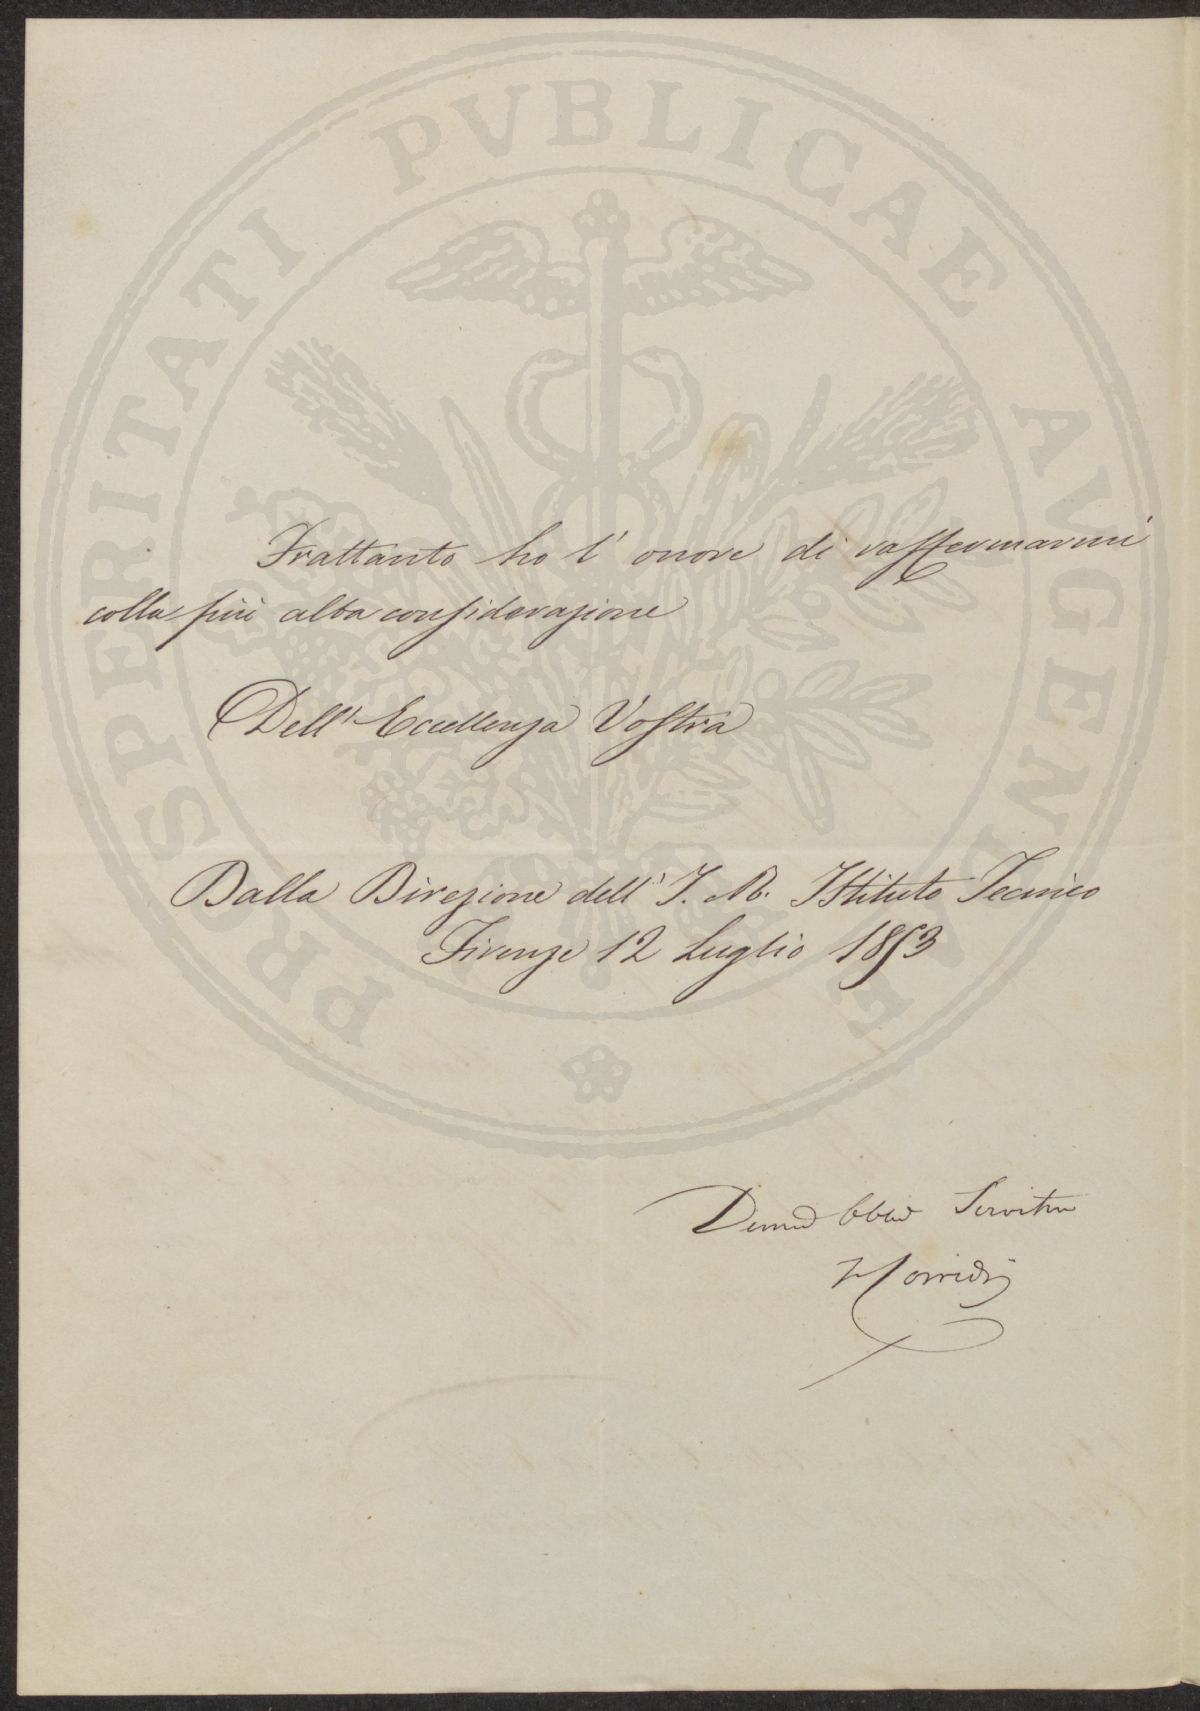 PROSPERITATI PVBLICAE AVGENDAE
Frattanto ho l' onore di raffermarmi
colla più alta considerazione
Dell' Eccellenza Vostra
Dalla Direzione dell' I. R. Istituto Tecnico
Firenze 12 Luglio 1853
Servitore